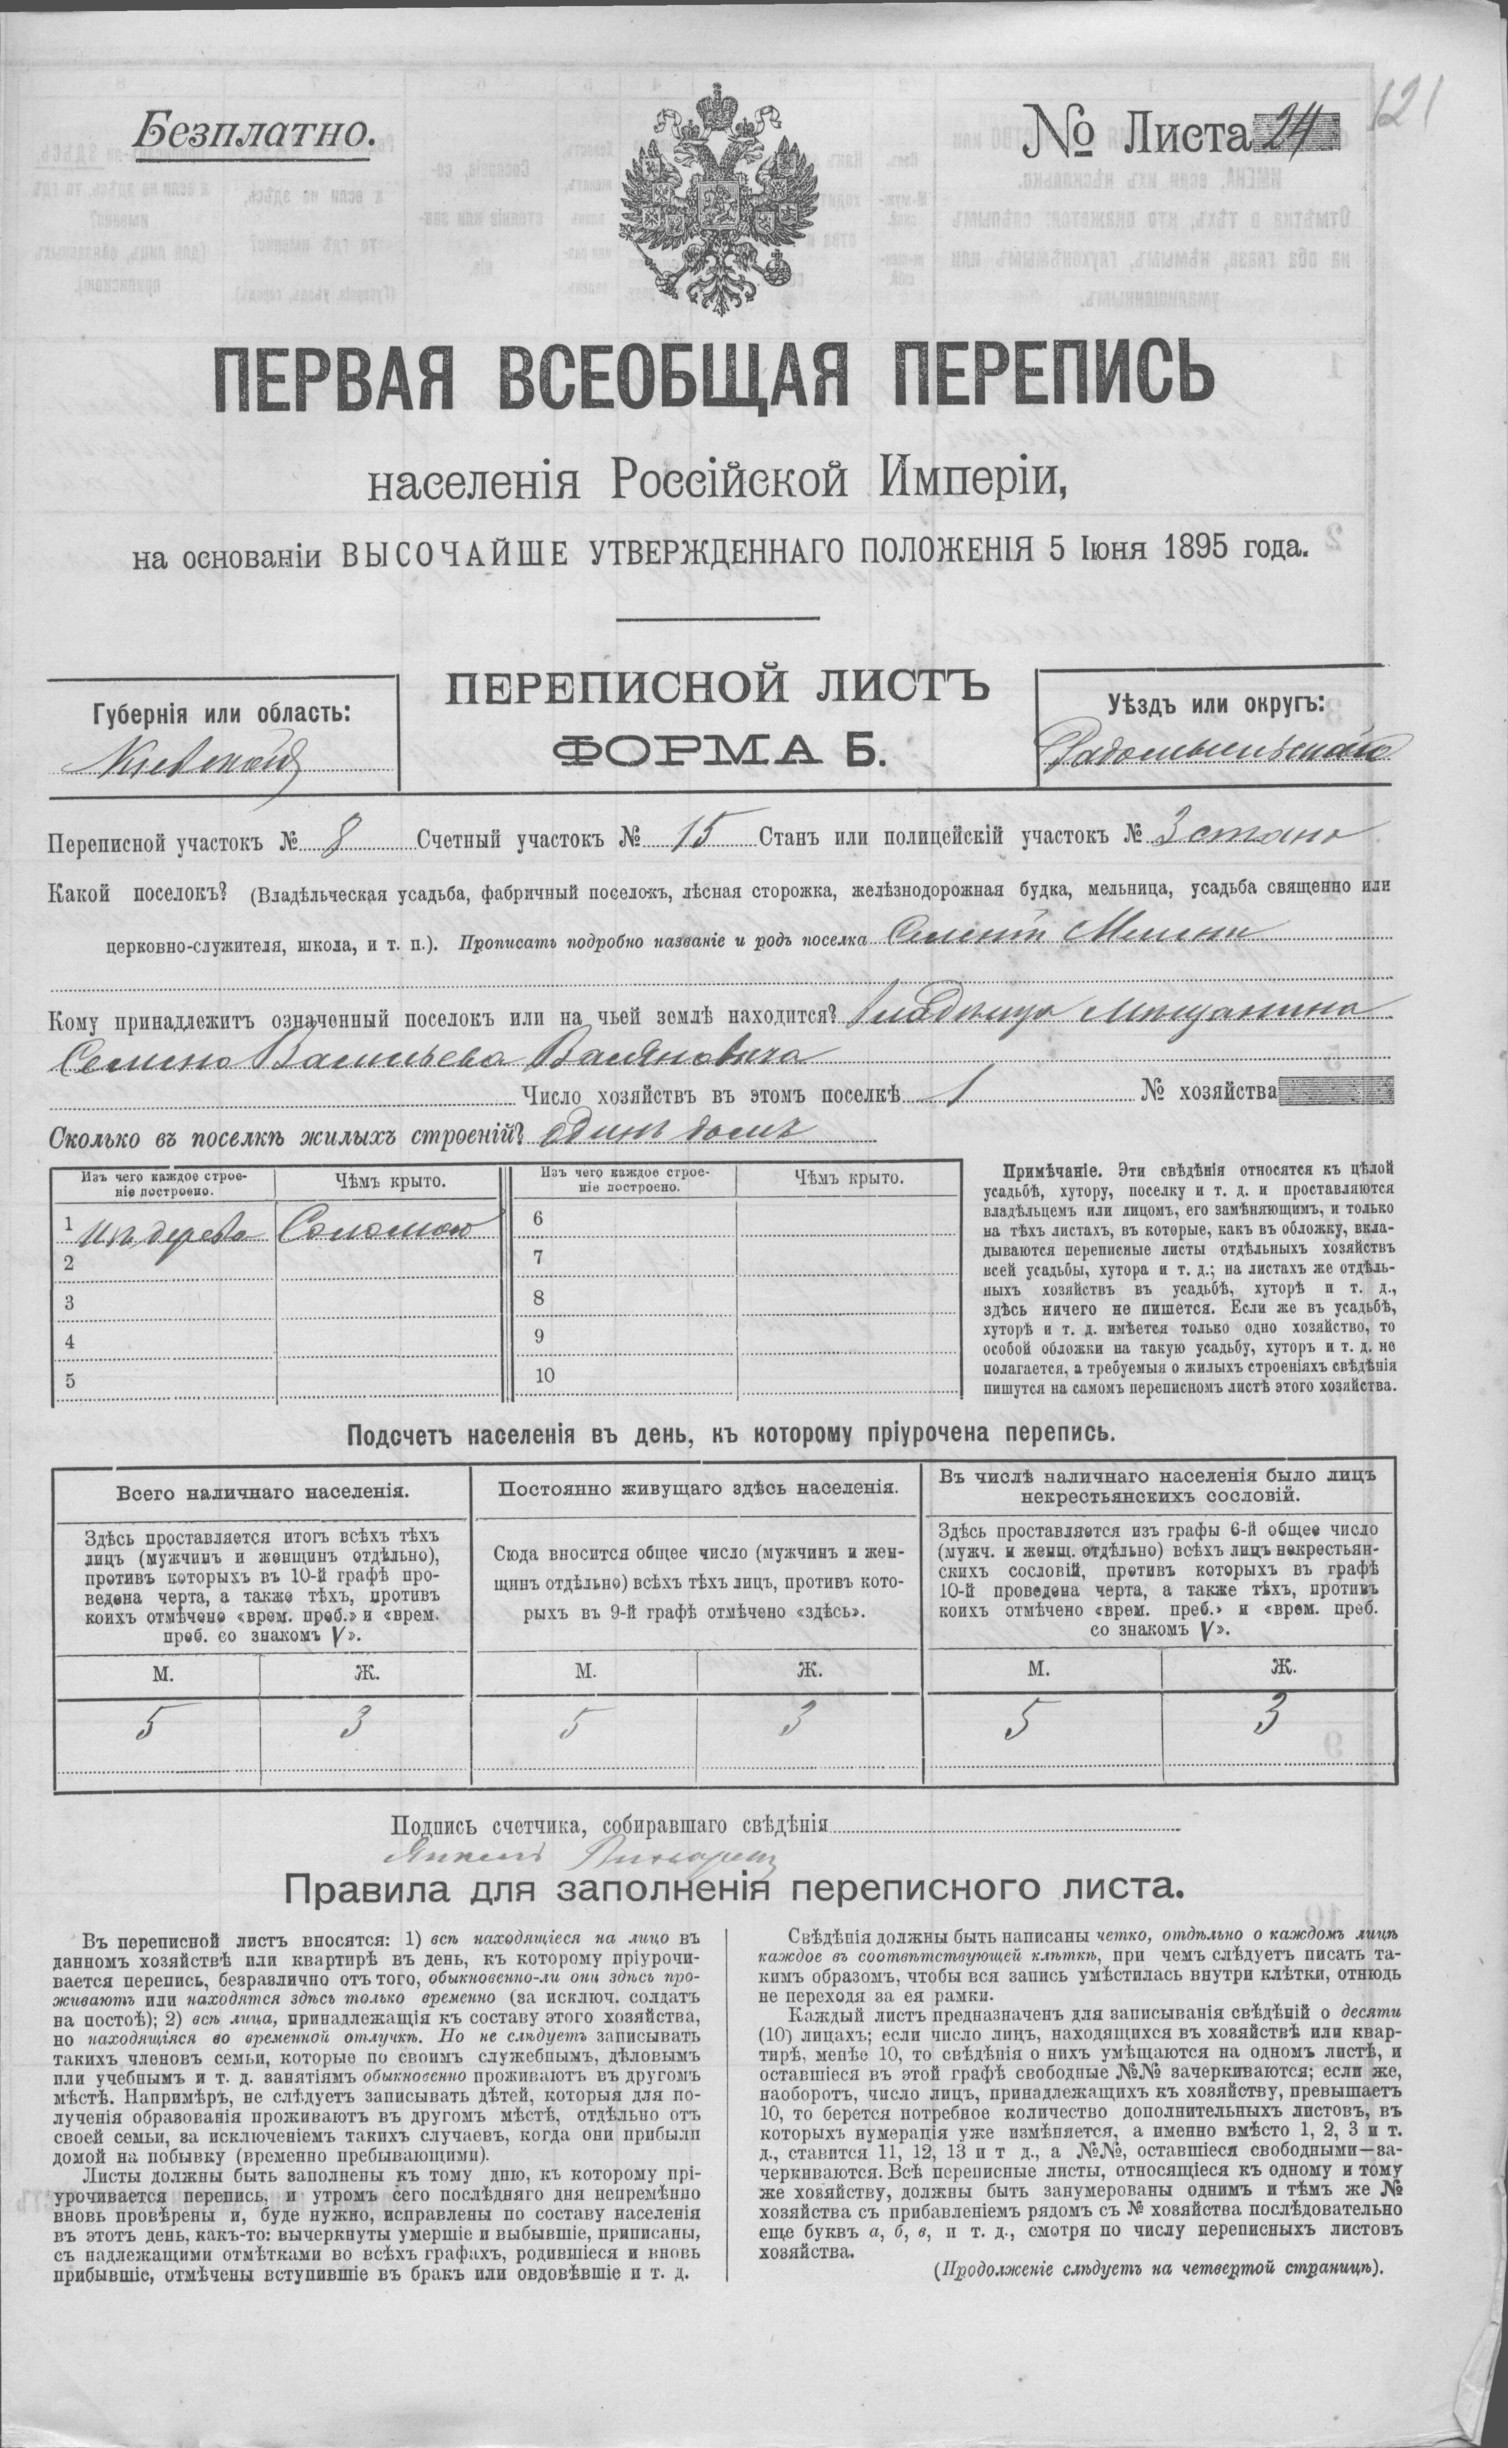 Безплатно.
№ Листа 24
121
ПЕРВАЯ ВСЕОБЩАЯ ПЕРЕПИСЬ
населенія Россійской Имперіи,
на основаніи ВЫСОЧАЙШЕ УТВЕРЖДЕННАГО ПОЛОЖЕНІЯ 5 Іюня 1895 года.
ПЕРЕПИСНОЙ ЛИСТЪ
ФОРМА Б.
Губернія или область:
Кіевской
Уѣздъ или округъ:
Радомысльскаго
Переписной участокъ № 8 Счетный участокъ № 15 Станъ или полицейскій участокъ № 3 стана
Какой поселокъ? (Владѣльческая усадьба, фабричный поселокъ, лѣсная сторожка, желѣзнодорожная будка, мельница, усадьба священно или
церковно-служителя, школа, и т. п.). Прописать подробно названіе и родъ поселка
Кому принадлежитъ означенный поселокъ или на чьей землѣ находится? мѣщанина
Семена Васильева
Число хозяйствъ въ этомъ поселкѣ 1 № хозяйства
Сколько въ поселкѣ жилыхъ строеній? одинъ домъ
Изъ чего каждое строе-
ніе построено.
Чѣмъ крыто.
Изъ чего каждое строе-
ніе построено.
Чѣмъ крыто.
1 Изъ дерева Соломою
2
3
4
5
6
7
8
9
10
Примѣчаніе. Эти свѣдѣнія относятся къ цѣлой
усадьбѣ, хутору, поселку и т. д. и проставляются
владѣльцемъ или лицомъ, его замѣняющимъ, и только
на тѣхъ листахъ, въ которые, какъ въ обложку, вкла-
дываются переписные листы отдѣльныхъ хозяйствъ
всей усадьбы, хутора и т. д.; на листахъ же отдѣль-
ныхъ хозяйствъ въ усадьбѣ, хуторѣ и т. д.,
здѣсь ничего не пишется. Если же въ усадьбѣ,
хуторѣ и т. д. имѣется только одно хозяйство, то
особой обложки на такую усадьбу, хуторъ и т. д. не
полагается, а требуемыя о жилыхъ строеніяхъ свѣдѣнія
пишутся на самомъ переписномъ листѣ этого хозяйства.
Подсчетъ населенія въ день, къ которому пріурочена перепись.
Всего наличнаго населенія.
Здѣсь проставляется итогъ всѣхъ тѣхъ
лицъ (мужчинъ и женщинъ отдѣльно),
противъ которыхъ въ 10-й графѣ про-
ведена черта, а также тѣхъ, противъ
коихъ отмѣчено «врем. преб.» и «врем.
преб. со знакомъ V».
М. Ж.
5 3
Постоянно живущаго здѣсь населенія.
Сюда вносится общее число (мужчинъ и жен-
щинъ отдѣльно) всѣхъ тѣхъ лицъ, противъ кото-
рыхъ въ 9-й графѣ отмѣчено «здѣсь».
М. Ж.
5 3
Въ числѣ наличнаго населенія было лицъ
некрестьянскихъ сословій.
Здѣсь проставляется изъ графы 6-й общее число
(мужч. и женщ. отдѣльно) всѣхъ лицъ некрестьян-
скихъ сословій, противъ которыхъ въ графѣ
10-й проведена черта, а также тѣхъ, противъ
коихъ отмѣчено «врем. преб.» и «врем. преб.
со знакомъ V».
М. Ж.
5 3
Подпись счетчика, собиравшаго свѣдѣнія
Правила для заполненія переписного листа.
Въ переписной листъ вносятся: 1) всѣ находящіеся на лицо въ
данномъ хозяйствѣ или квартирѣ въ день, къ которому пріурочи-
вается перепись, безразлично отъ того, обыкновенно-ли они здѣсь про-
живаютъ или находятся здѣсь только временно (за исключ. солдатъ
на постоѣ); 2) всѣ лица, принадлежащія къ составу этого хозяйства,
но находящіяся во временной отлучкѣ. Но не слѣдуетъ записывать
такихъ членовъ семьи, которые по своимъ служебнымъ, дѣловымъ
или учебнымъ и т. д. занятіямъ обыкновенно проживаютъ въ другомъ
мѣстѣ. Напримѣръ, не слѣдуетъ записывать дѣтей, которыя для по-
лученія образованія проживаютъ въ другомъ мѣстѣ, отдѣльно отъ
своей семьи, за исключеніемъ такихъ случаевъ, когда они прибыли
домой на побывку (временно пребывающими).
Листы должны быть заполнены къ тому дню, къ которому прі-
урочивается перепись, и утромъ сего послѣдняго дня непремѣнно
вновь провѣрены и, буде нужно, исправлены по составу населенія
въ этотъ день, какъ-то: вычеркнуты умершіе и выбывшіе, приписаны,
съ надлежащими отмѣтками во всѣхъ графахъ, родившіеся и вновь
прибывшіе, отмѣчены вступившіе въ бракъ или овдовѣвшіе и т. д.
Свѣдѣнія должны быть написаны четко, отдѣльно о каждомъ лицѣ
каждое въ соотвѣтствующей клѣткѣ, при чемъ слѣдуетъ писать та-
кимъ образомъ, чтобы вся запись умѣстилась внутри клѣтки, отнюдь
не переходя за ея рамки.
Каждый листъ предназначенъ для записыванія свѣдѣній о десяти
(10) лицахъ; если число лицъ, находящихся въ хозяйствѣ или квар-
тирѣ, менѣе 10, то свѣдѣнія о нихъ умѣщаются на одномъ листѣ, и
оставшіеся въ этой графѣ свободные №№ зачеркиваются; если же,
наоборотъ, число лицъ, принадлежащихъ къ хозяйству, превышаетъ
10, то берется потребное количество дополнительныхъ листовъ, въ
которыхъ нумерація уже измѣняется, а именно вмѣсто 1, 2, 3 и т.
д., ставится 11, 12, 13 и т д., а №№, оставшіеся свободными—за-
черкиваются. Всѣ переписные листы, относящіеся къ одному и тому
же хозяйству, должны быть занумерованы однимъ и тѣмъ же №
хозяйства съ прибавленіемъ рядомъ съ № хозяйства послѣдовательно
еще буквъ а, б, в, и т. д., смотря по числу переписныхъ листовъ
хозяйства.
(Продолженіе слѣдуетъ на четвертой страницѣ).